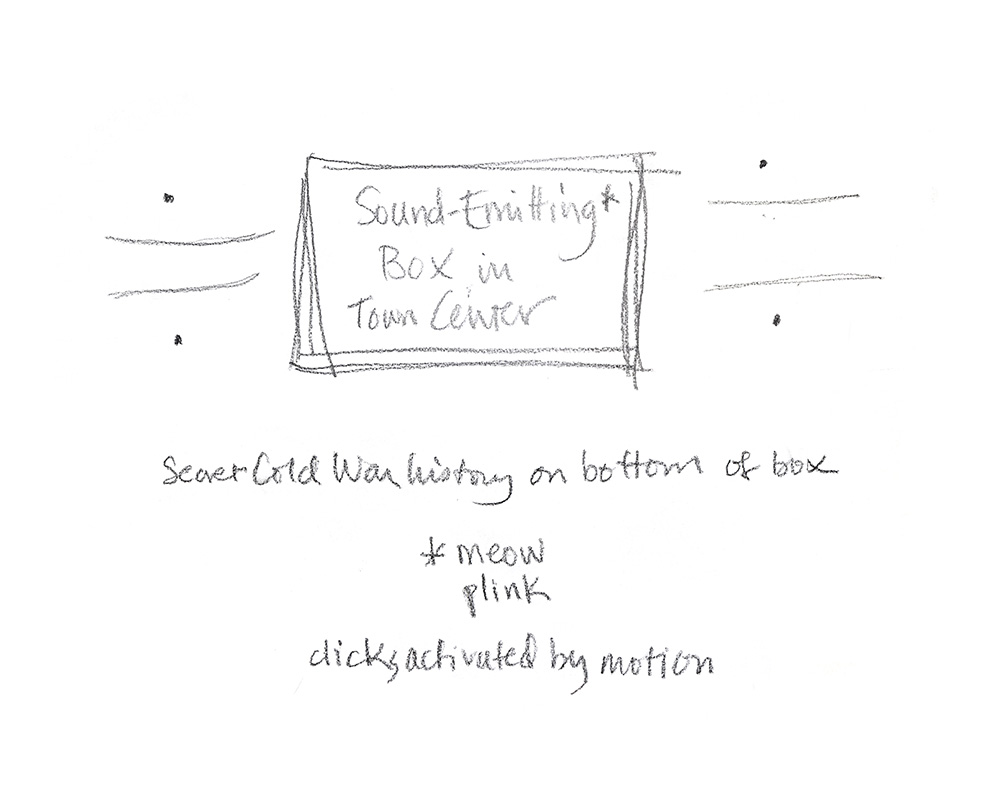 Sound-Emitting*
Box in
Town Center
Secret Cold War history on bottom of box
* meow
plink
clicks, activated by motion